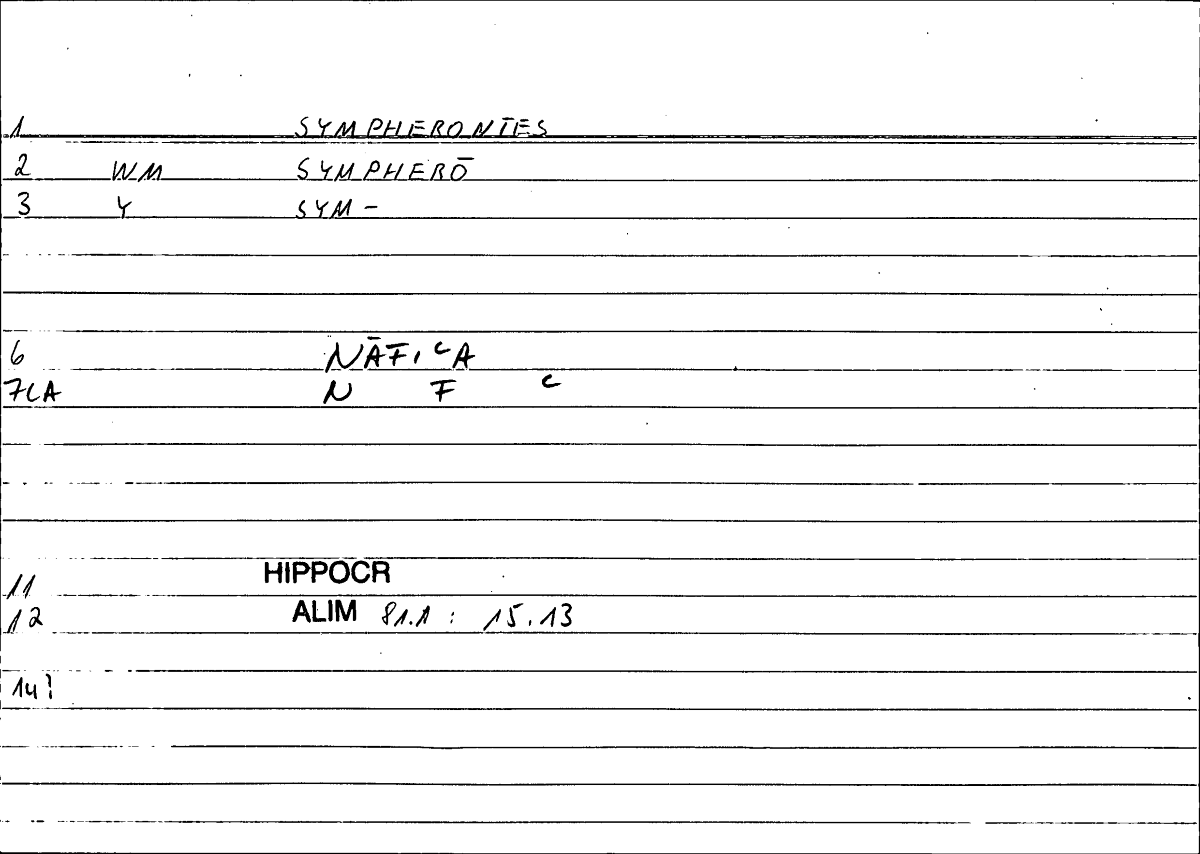 1 SYMPHERONTES
2 WM SYMPHERŌ
3 Y SYM-
6 NĀFIʿA
7CA N F ʿ
11 HIPPOCR
12 ALIM 81.1 : 15.13
14!